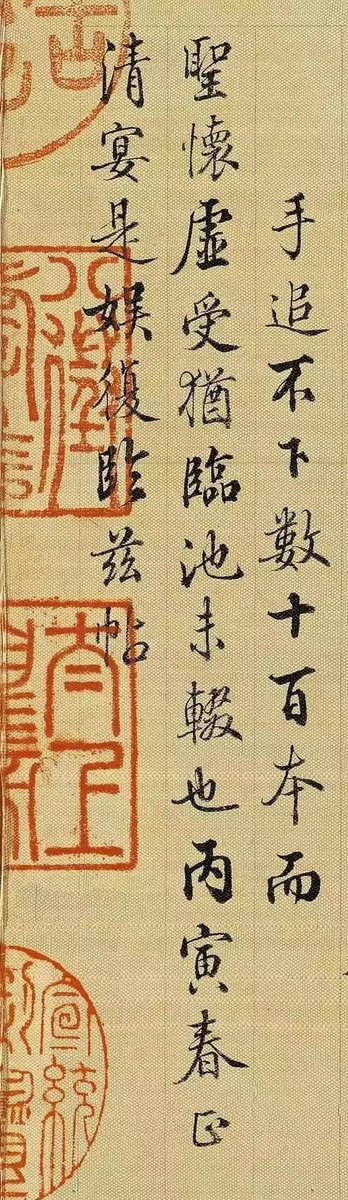 手追不下數十百本而
聖懷虛受猶臨池未輟也丙寅春正
清宴是娛復臨茲帖
太上
宣統